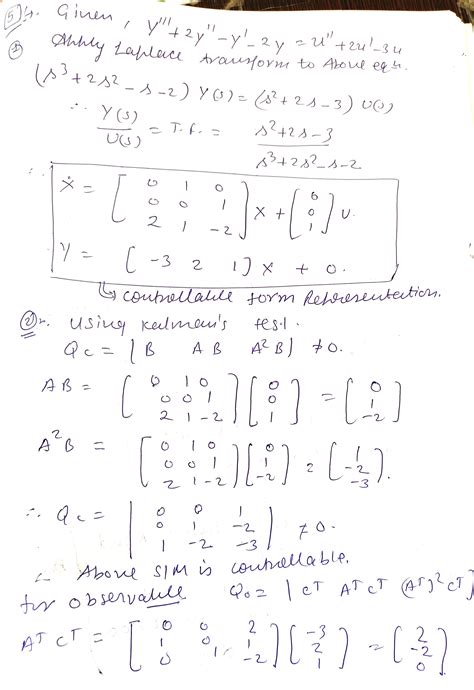 5 Given, y''' + 2y'' - y' - 2y = u'' + 2u' - 3u
① Apply Laplace transform to Above eqn.
(s³ + 2s² - s - 2) Y(s) = (s² + 2s - 3) U(s)
∴ Y(s)/U(s) = T.f. = (s² + 2s - 3)/(s³ + 2s² - s - 2)
∴ Ẋ = [0 1 0; 0 0 1; 2 1 -2] X + [0; 0; 1] U.
Y = [-3 2 1] X + 0.
↳ controllable form Representation.
② Using Kalman's test.
Qc = |B AB A²B| ≠ 0.
AB = [0 1 0; 0 0 1; 2 1 -2] [0; 0; 1] = [0; 1; -2]
A²B = [0 1 0; 0 0 1; 2 1 -2] [0; 1; -2] = [1; -2; -3].
∴ Qc = |0 0 1; 0 1 -2; 1 -2 -3| ≠ 0.
∴ Above S/M is controllable.
for observable Qo = |Cᵀ AᵀCᵀ (Aᵀ)²Cᵀ|
AᵀCᵀ = [0 0 2; 1 0 1; 0 1 -2] [-3; 2; 1] = [2; -2; 0]